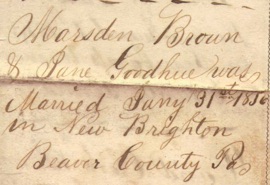 Marsden Brown
& Jane Goodhue was
Married Jany 31st 1856
in New Brighton
Beaver County Pa